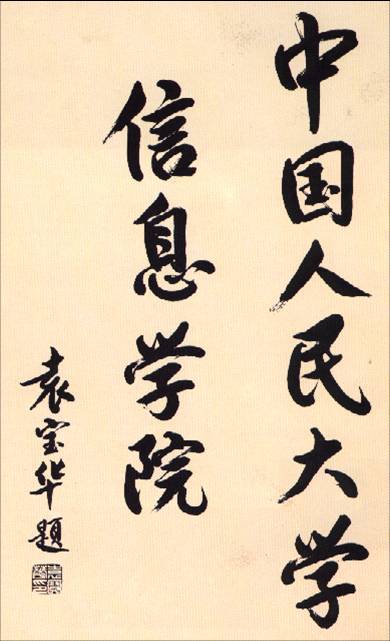 中国人民大学
信息学院
袁宝华题